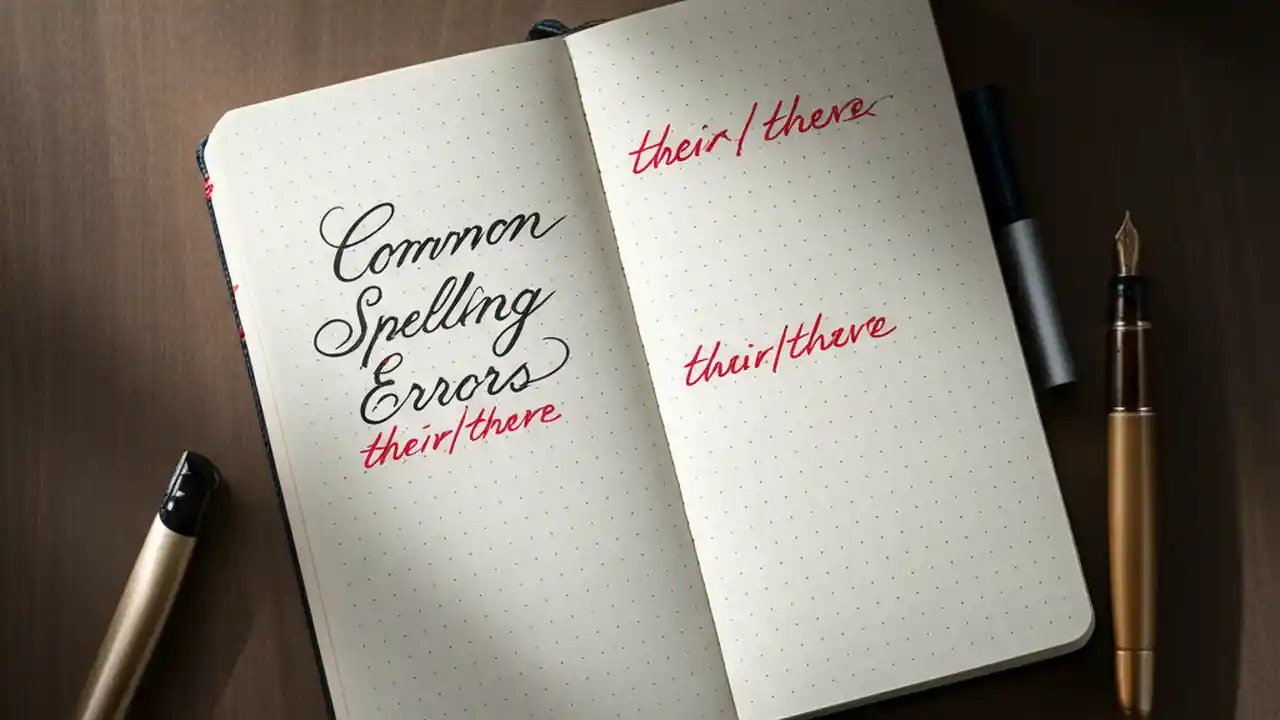 Common
Spelling
Errors
their/there
their/there
their/there